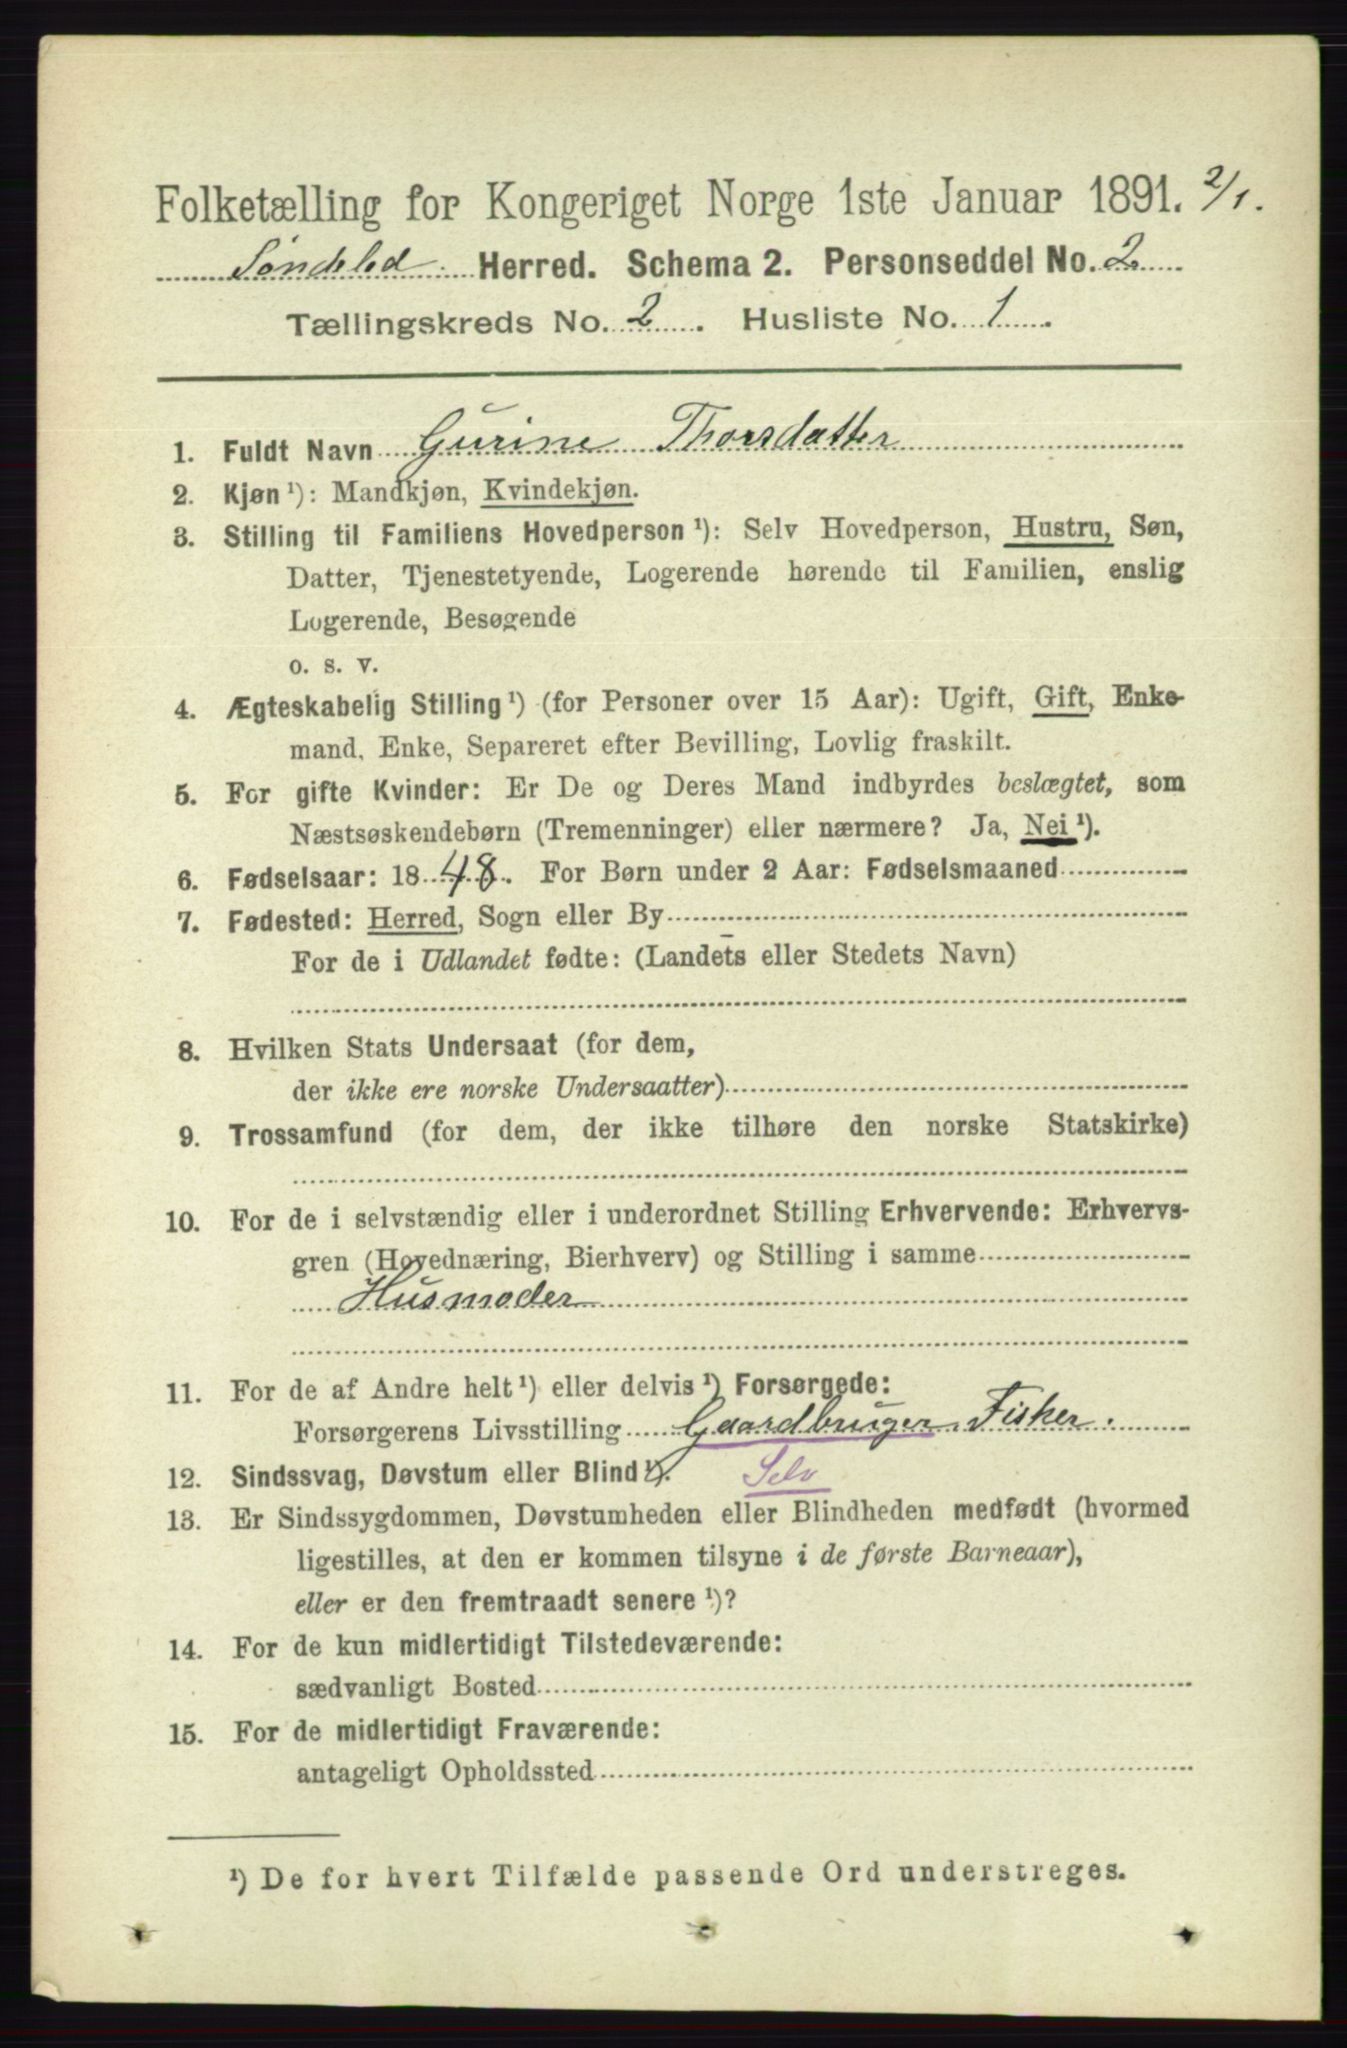 Folketælling for Kongeriget Norge 1ste Januar 1891. 2/1.
Søndeled Herred. Schema 2. Personseddel No. 2
Tællingskreds No. 2. Husliste No. 1.
1. Fuldt Navn Gurine Thorsdatter
2. Kjøn ¹): Mandkjøn, Kvindekjøn.
3. Stilling til Familiens Hovedperson ¹): Selv Hovedperson, Hustru, Søn,
Datter, Tjenestetyende, Logerende hørende til Familien, enslig
Logerende, Besøgende
o. s. v.
4. Ægteskabelig Stilling ¹) (for Personer over 15 Aar): Ugift, Gift, Enke-
mand, Enke, Separeret efter Bevilling, Lovlig fraskilt.
5. For gifte Kvinder: Er De og Deres Mand indbyrdes beslægtet, som
Næstsøskendebørn (Tremenninger) eller nærmere? Ja, Nei ¹).
6. Fødselsaar: 1848. For Børn under 2 Aar: Fødselsmaaned
7. Fødested: Herred, Sogn eller By
For de i Udlandet fødte: (Landets eller Stedets Navn)
8. Hvilken Stats Undersaat (for dem,
der ikke ere norske Undersaatter)
9. Trossamfund (for dem, der ikke tilhøre den norske Statskirke)
10. For de i selvstændig eller i underordnet Stilling Erhvervende: Erhvervs-
gren (Hovednæring, Bierhverv) og Stilling i samme
Husmoder
11. For de af Andre helt ¹) eller delvis ¹) Forsørgede:
Forsørgerens Livsstilling Gaardbruger, Fisker.
12. Sindssvag, Døvstum eller Blind ¹). Selv
13. Er Sindssygdommen, Døvstumheden eller Blindheden medfødt (hvormed
ligestilles, at den er kommen tilsyne i de første Barneaar),
eller er den fremtraadt senere ¹)?
14. For de kun midlertidigt Tilstedeværende:
sædvanligt Bosted
15. For de midlertidigt Fraværende:
antageligt Opholdssted
¹) De for hvert Tilfælde passende Ord understreges.